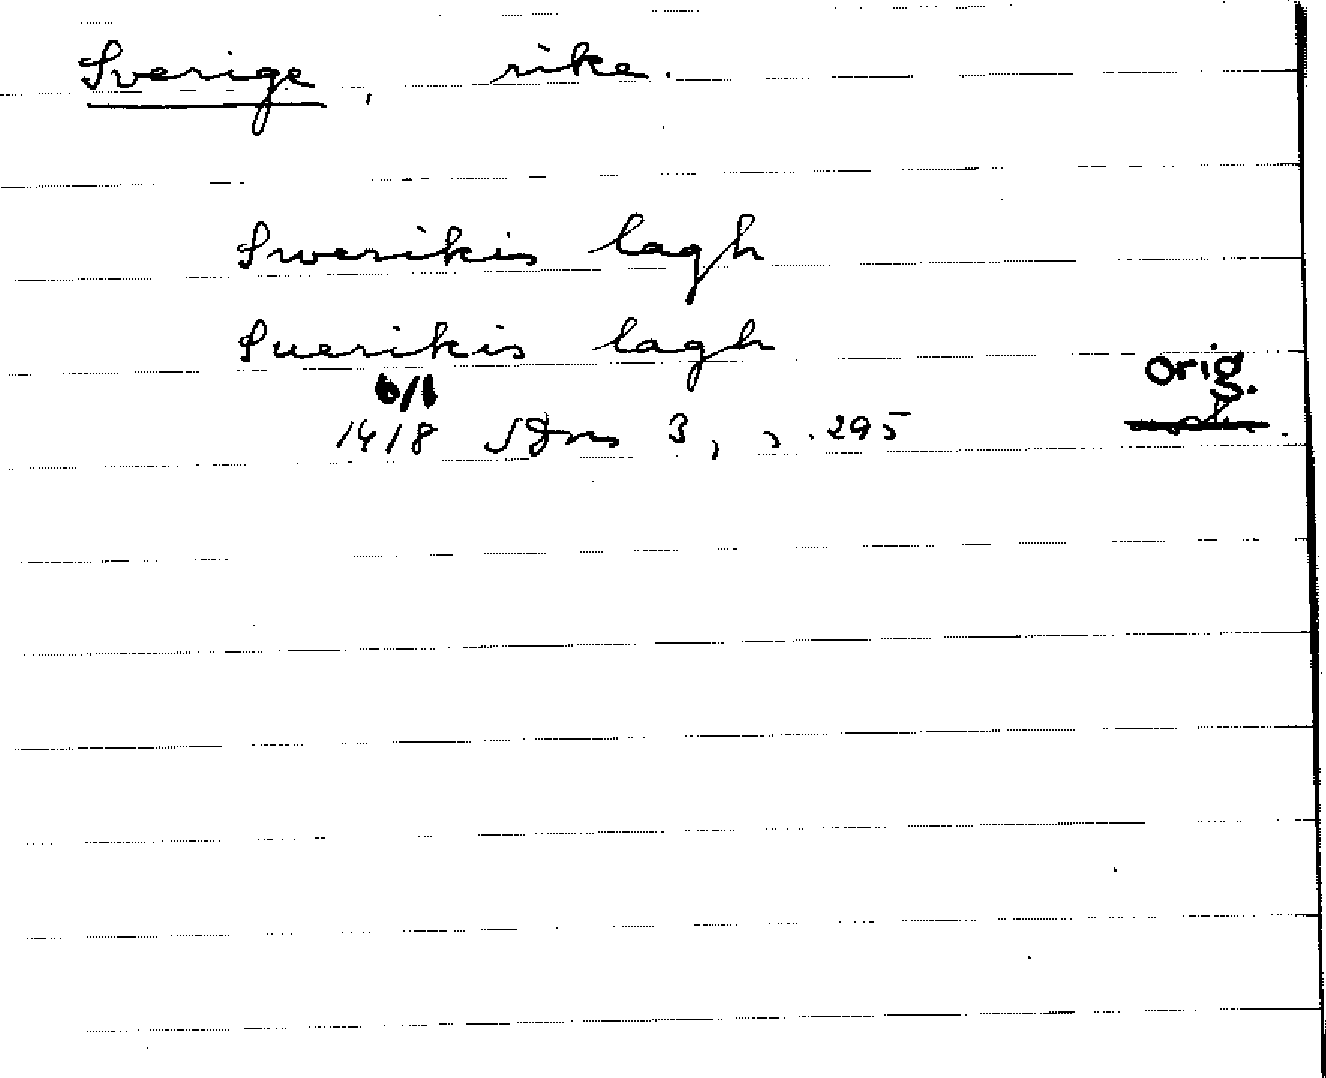 Sverige, rike.
Swerikis lagh
Suerikis lagh
orig.
6/1
1418 SDns 3, s. 295